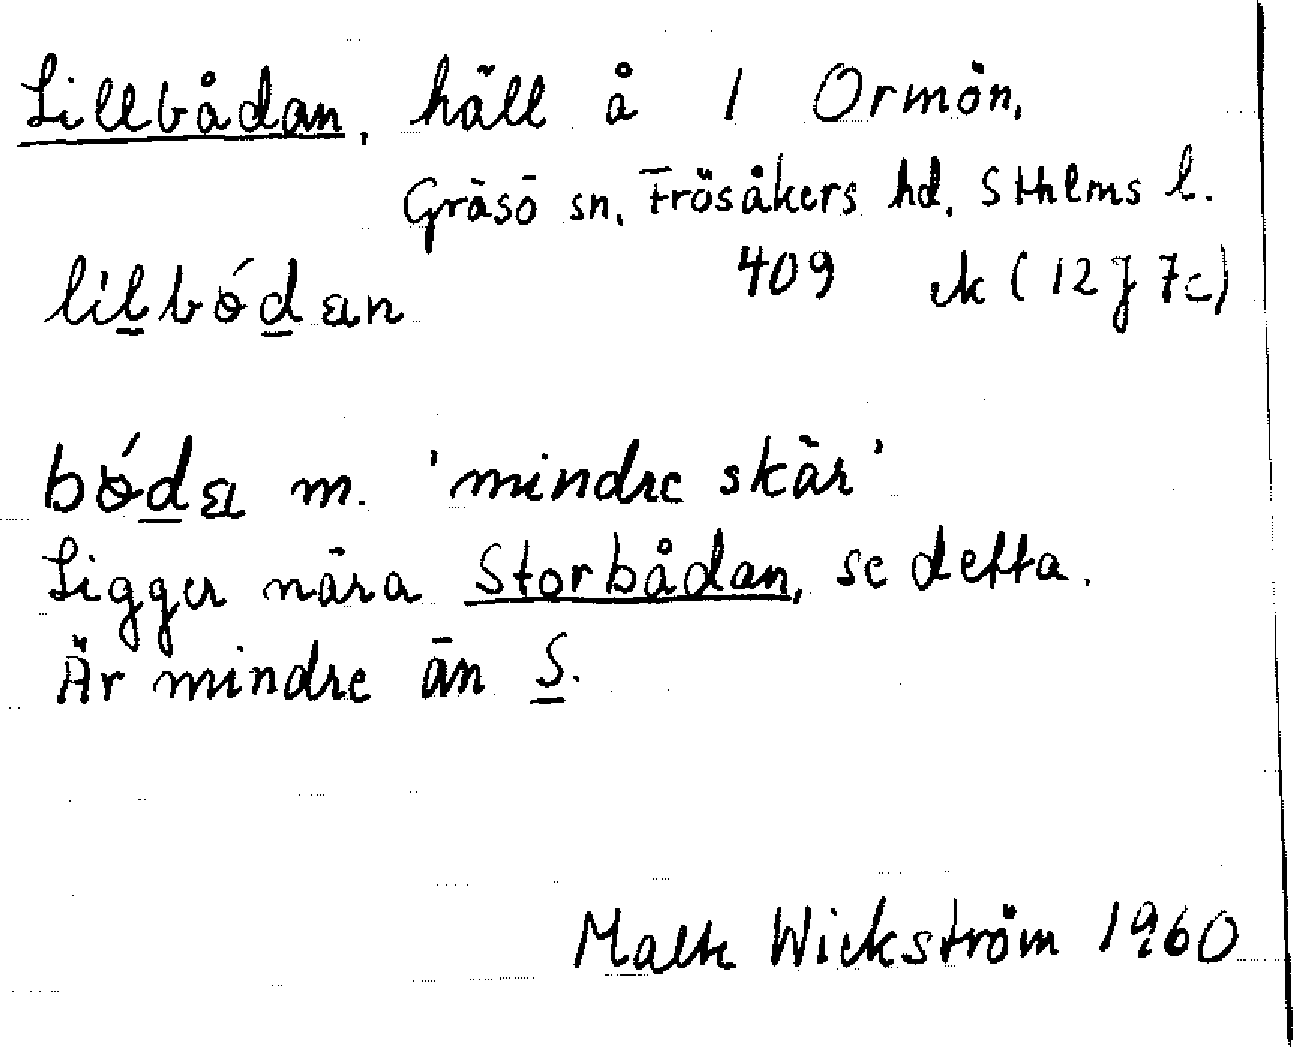 Lillbådan, häll å 1 Ormön,
Gräsö sn, Frösåkers hd, Sthlms l.
409 ek (12 J 7c)
m. 'mindre skär'
Ligger nära Storbådan, se detta.
Är mindre än S.
Malte Wickström 1960